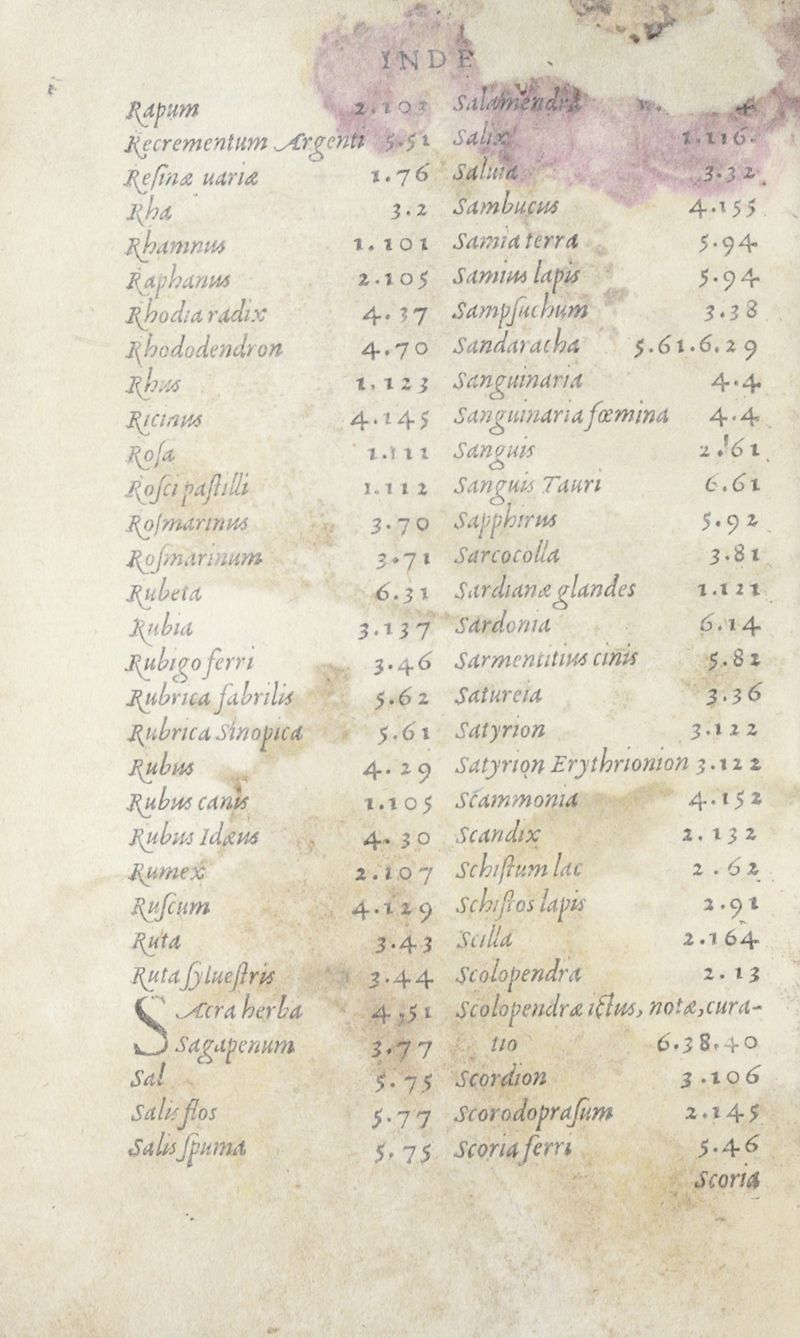 INDE
Rapum 2.103
Recrementum Argenti 5.51
Reſinæ uariæ 1.76
Rha 3.2
Rhamnus 1.101
Raphanus 2.105
Rhodia radix 4.37
Rhododendron 4.70
Rhus 1.123
Ricinus 4.145
Roſa 1.111
Roſei paſtilli 1.112
Roſmarinus 3.70
Roſmarinum 3.71
Rubeta 6.31
Rubia 3.137
Rubigo ferri 3.46
Rubrica fabrilis 5.62
Rubrica Sinopica 5.61
Rubus 4.29
Rubus canis 1.105
Rubus Idæus 4.30
Rumex 2.107
Ruſcum 4.129
Ruta 3.43
Ruta ſylueſtris 3.44
SAcra herba 4.51
Sagapenum 3.77
Sal 5.75
Salis flos 5.77
Salis ſpuma 5.75
Salamendra
Salix 1.116.
Saluia 3.32.
Sambucus 4.155
Samia terra 5.94
Samius lapis 5.94
Sampſuchum 3.38
Sandaracha 5.61.6.29
Sanguinaria 4.4
Sanguinaria fœmina 4.4
Sanguis 2.161
Sanguis Tauri 6.61
Sapphirus 5.92
Sarcocolla 3.81
Sardianæ glandes 1.121
Sardonia 6.14
Sarmentitius cinis 5.82
Satureia 3.36
Satyrion 3.122
Satyrion Erythrionion 3.122
Scammonia 4.152
Scandix 2.132
Schiſtum lac 2.62
Schiſtos lapis 2.91
Scilla 2.164
Scolopendra 2.13
Scolopendræ ictus, notæ, cura-
tio 6.38.40
Scordion 3.106
Scorodopraſum 2.145
Scoria ferri 5.46
Scoria